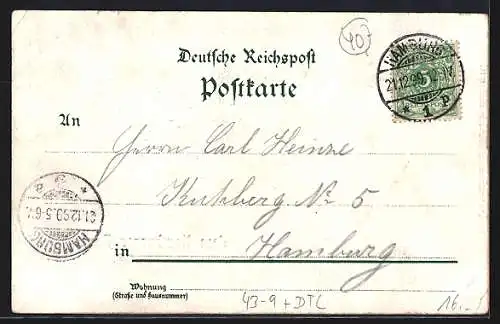 40
Deutsche Reichspost
Postkarte
HAMBURG
21.12.99
5
* 1 P
An
Herrn Carl Heinze
Kuhberg No 5
in Hamburg
21.12.99.5-6
HAMBURG
Wohnung
(Straße und Hausnummer)
43-9 + DTC
16.-